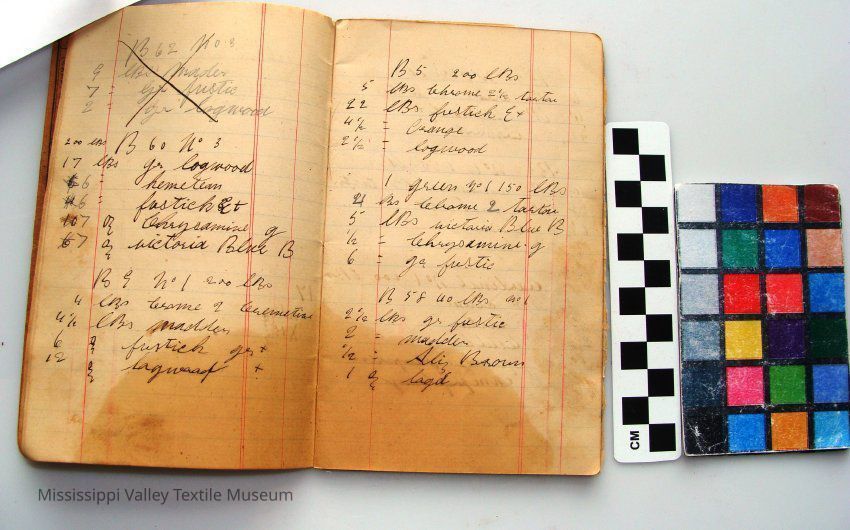 B 62 No 3
9 lbs madder
7 = gr fustic
2 = gr logwood
200 lbs B 60 No 3
17 lbs gr logwood
6 = hemetein
6 = fustick Ext
107 oz Chrysamine g
67 oz victoria Blue B
B 9 No 1 200 lBs
4 lBs crome 2
4 1/2 lBs madder
6 = fustick grs +
12 logwood +
B 5 200 lBs
5 lBs chrome 2 1/2 tartar
22 lBs fustick Ex
4 1/2 = Orange
2 1/2 = logwood
1 green No 1 150 lBs
4 lBs chrome 2 tartar
5 lBs victoria Blue B
1/2 = Chrysamine g
6 = gr fustic
B 58 40 lBs No 1
2 1/2 lBs gr fustic
2 = madder
1/2 = Aliz Brown
1 oz logd
CM
Mississippi Valley Textile Museum